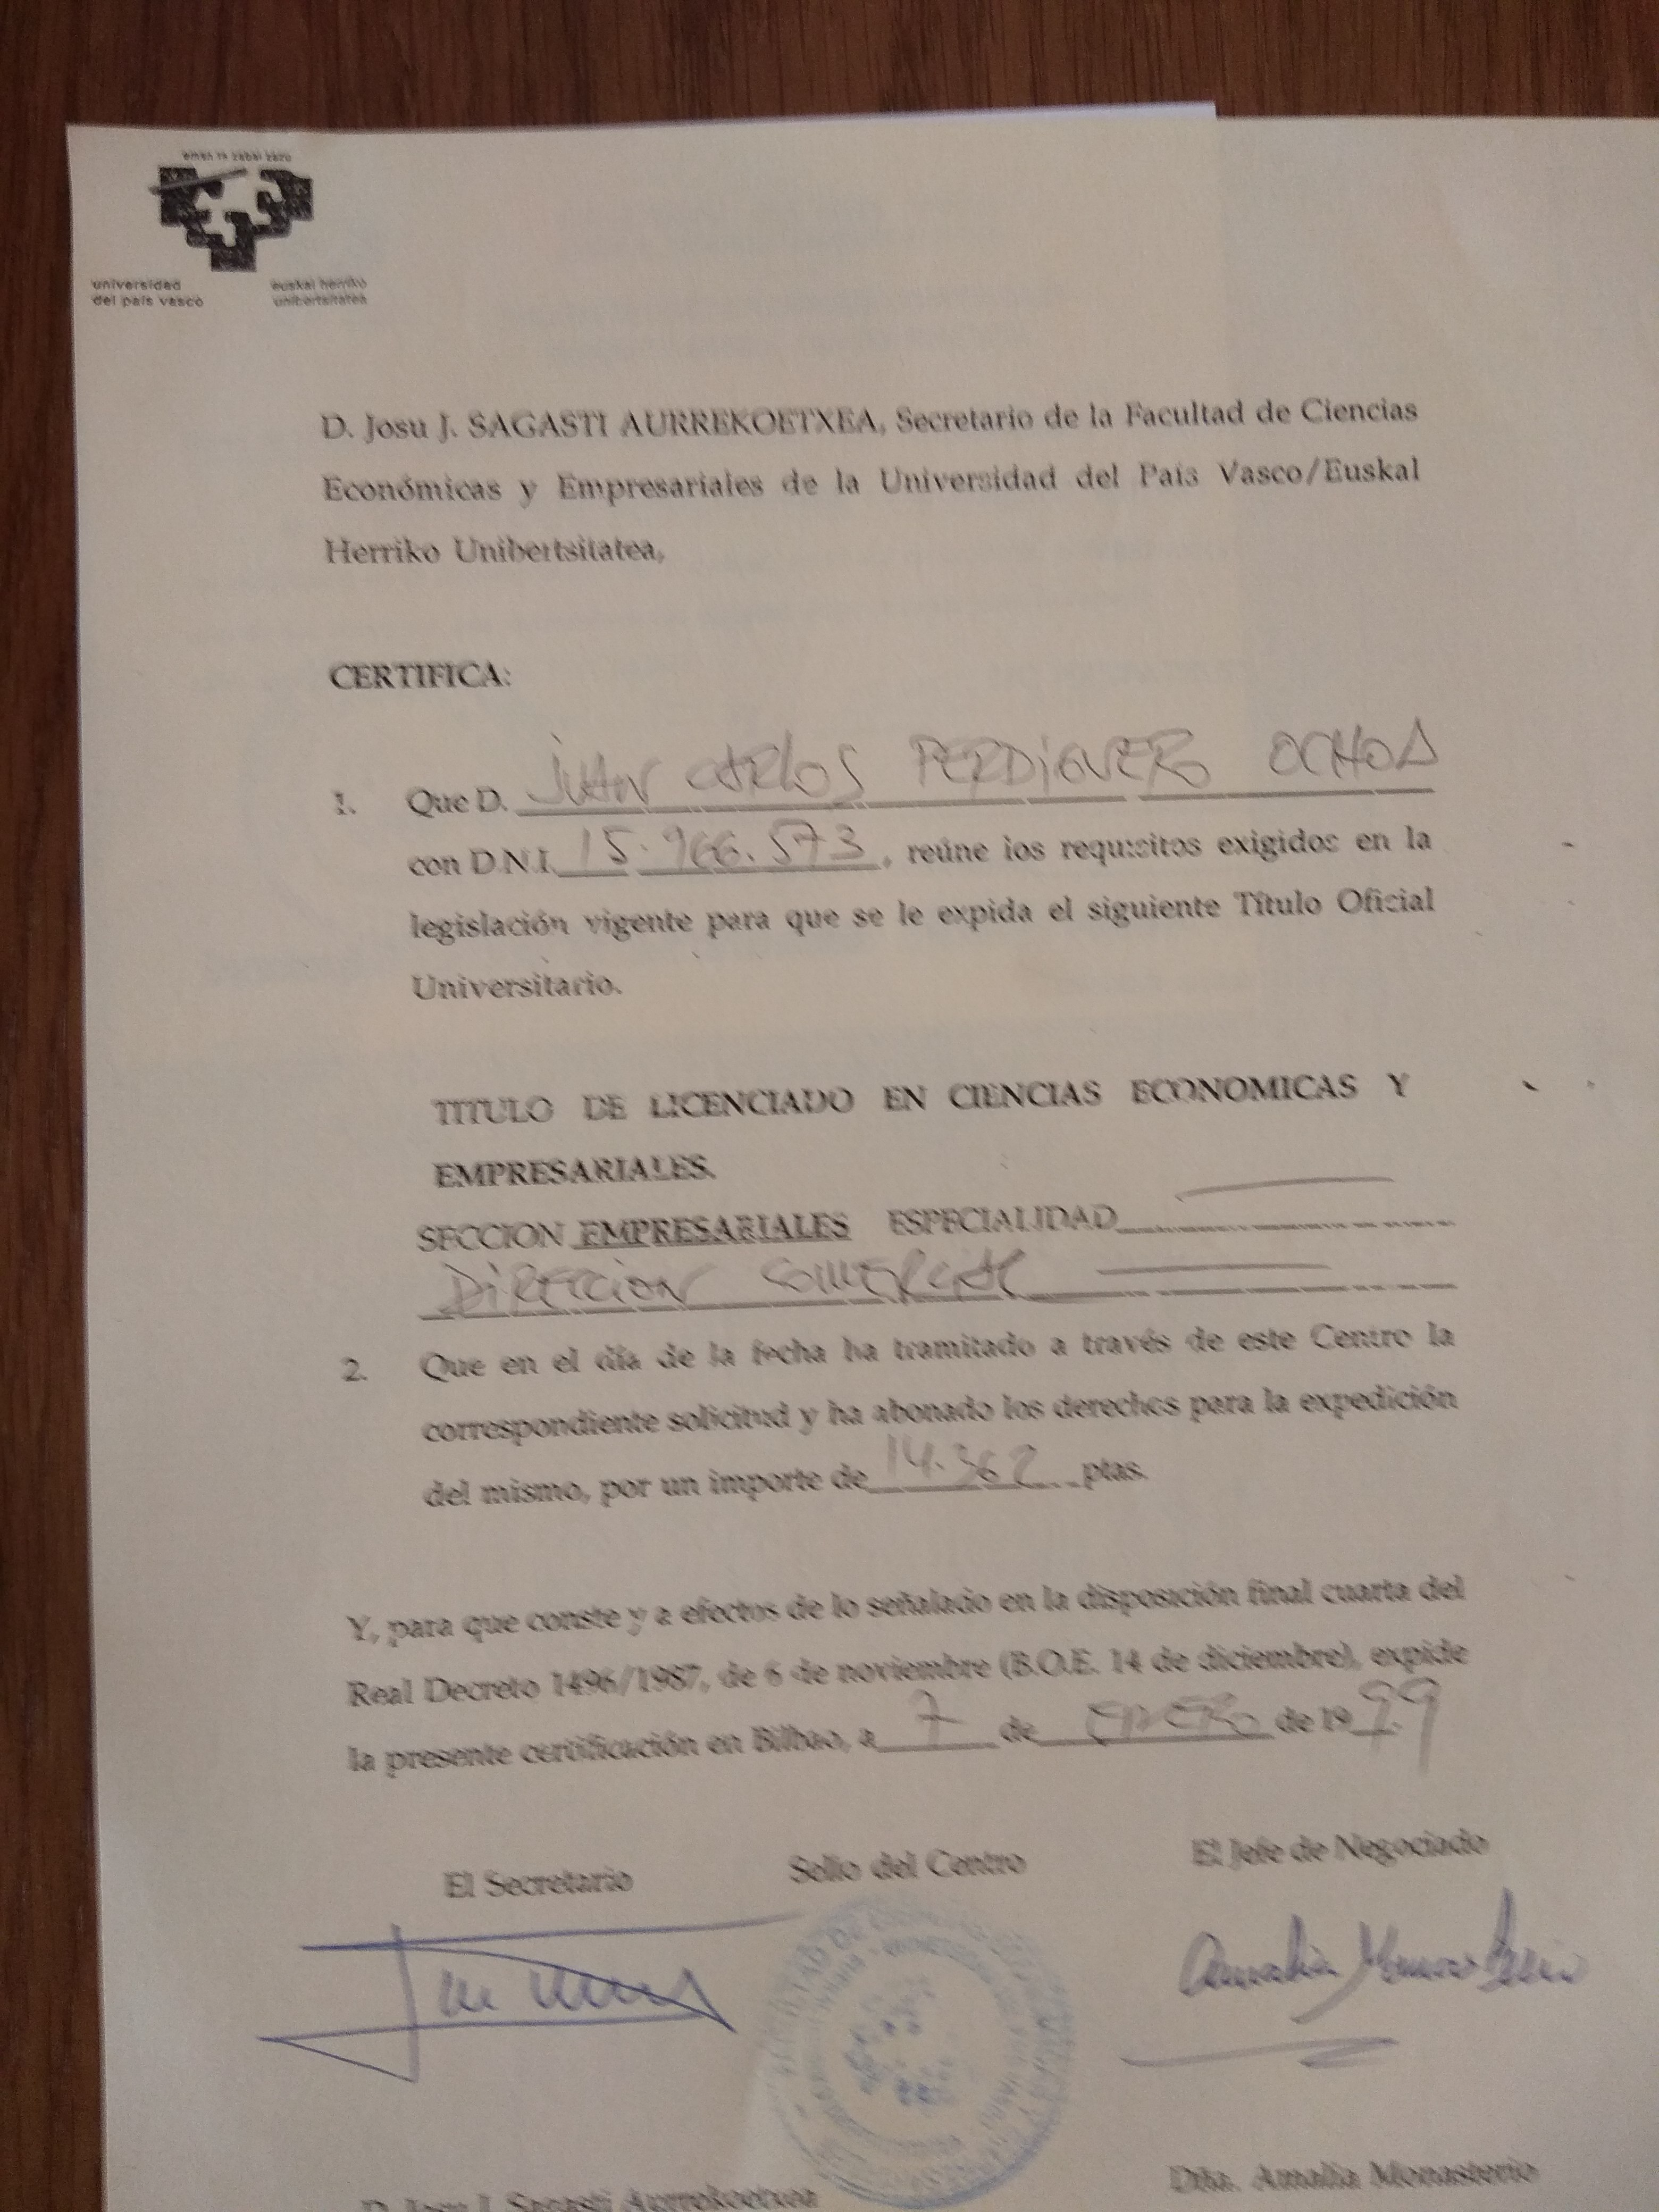 eman ta zabal zazu
universidad
del país vasco
euskal herriko
unibertsitatea
D. Josu J. SAGASTI AURREKOETXEA, Secretario de la Facultad de Ciencias
Económicas y Empresariales de la Universidad del País Vasco/Euskal
Herriko Unibertsitatea,
CERTIFICA:
1. Que D. JUAN CARLOS PERDIGUERO OCHOA
con D.N.I. 15.966.573, reúne los requisitos exigidos en la
legislación vigente para que se le expida el siguiente Título Oficial
Universitario.
TITULO DE LICENCIADO EN CIENCIAS ECONOMICAS Y
EMPRESARIALES.
SECCION EMPRESARIALES ESPECIALIDAD
DIRECCION COMERCIAL
2. Que en el día de la fecha ha tramitado a través de este Centro la
correspondiente solicitud y ha abonado los derechos para la expedición
del mismo, por un importe de 14.362 ptas.
Y, para que conste y a efectos de lo señalado en la disposición final cuarta del
Real Decreto 1496/1987, de 6 de noviembre (B.O.E. 14 de diciembre), expide
la presente certificación en Bilbao, a 7 de ENERO de 1999
El Secretario
Sello del Centro
El Jefe de Negociado
Amalia Monasterio
FACULTAD DE CIENCIAS
D. Josu J. Sagasti Aurrekoetxea
Dña. Amalia Monasterio